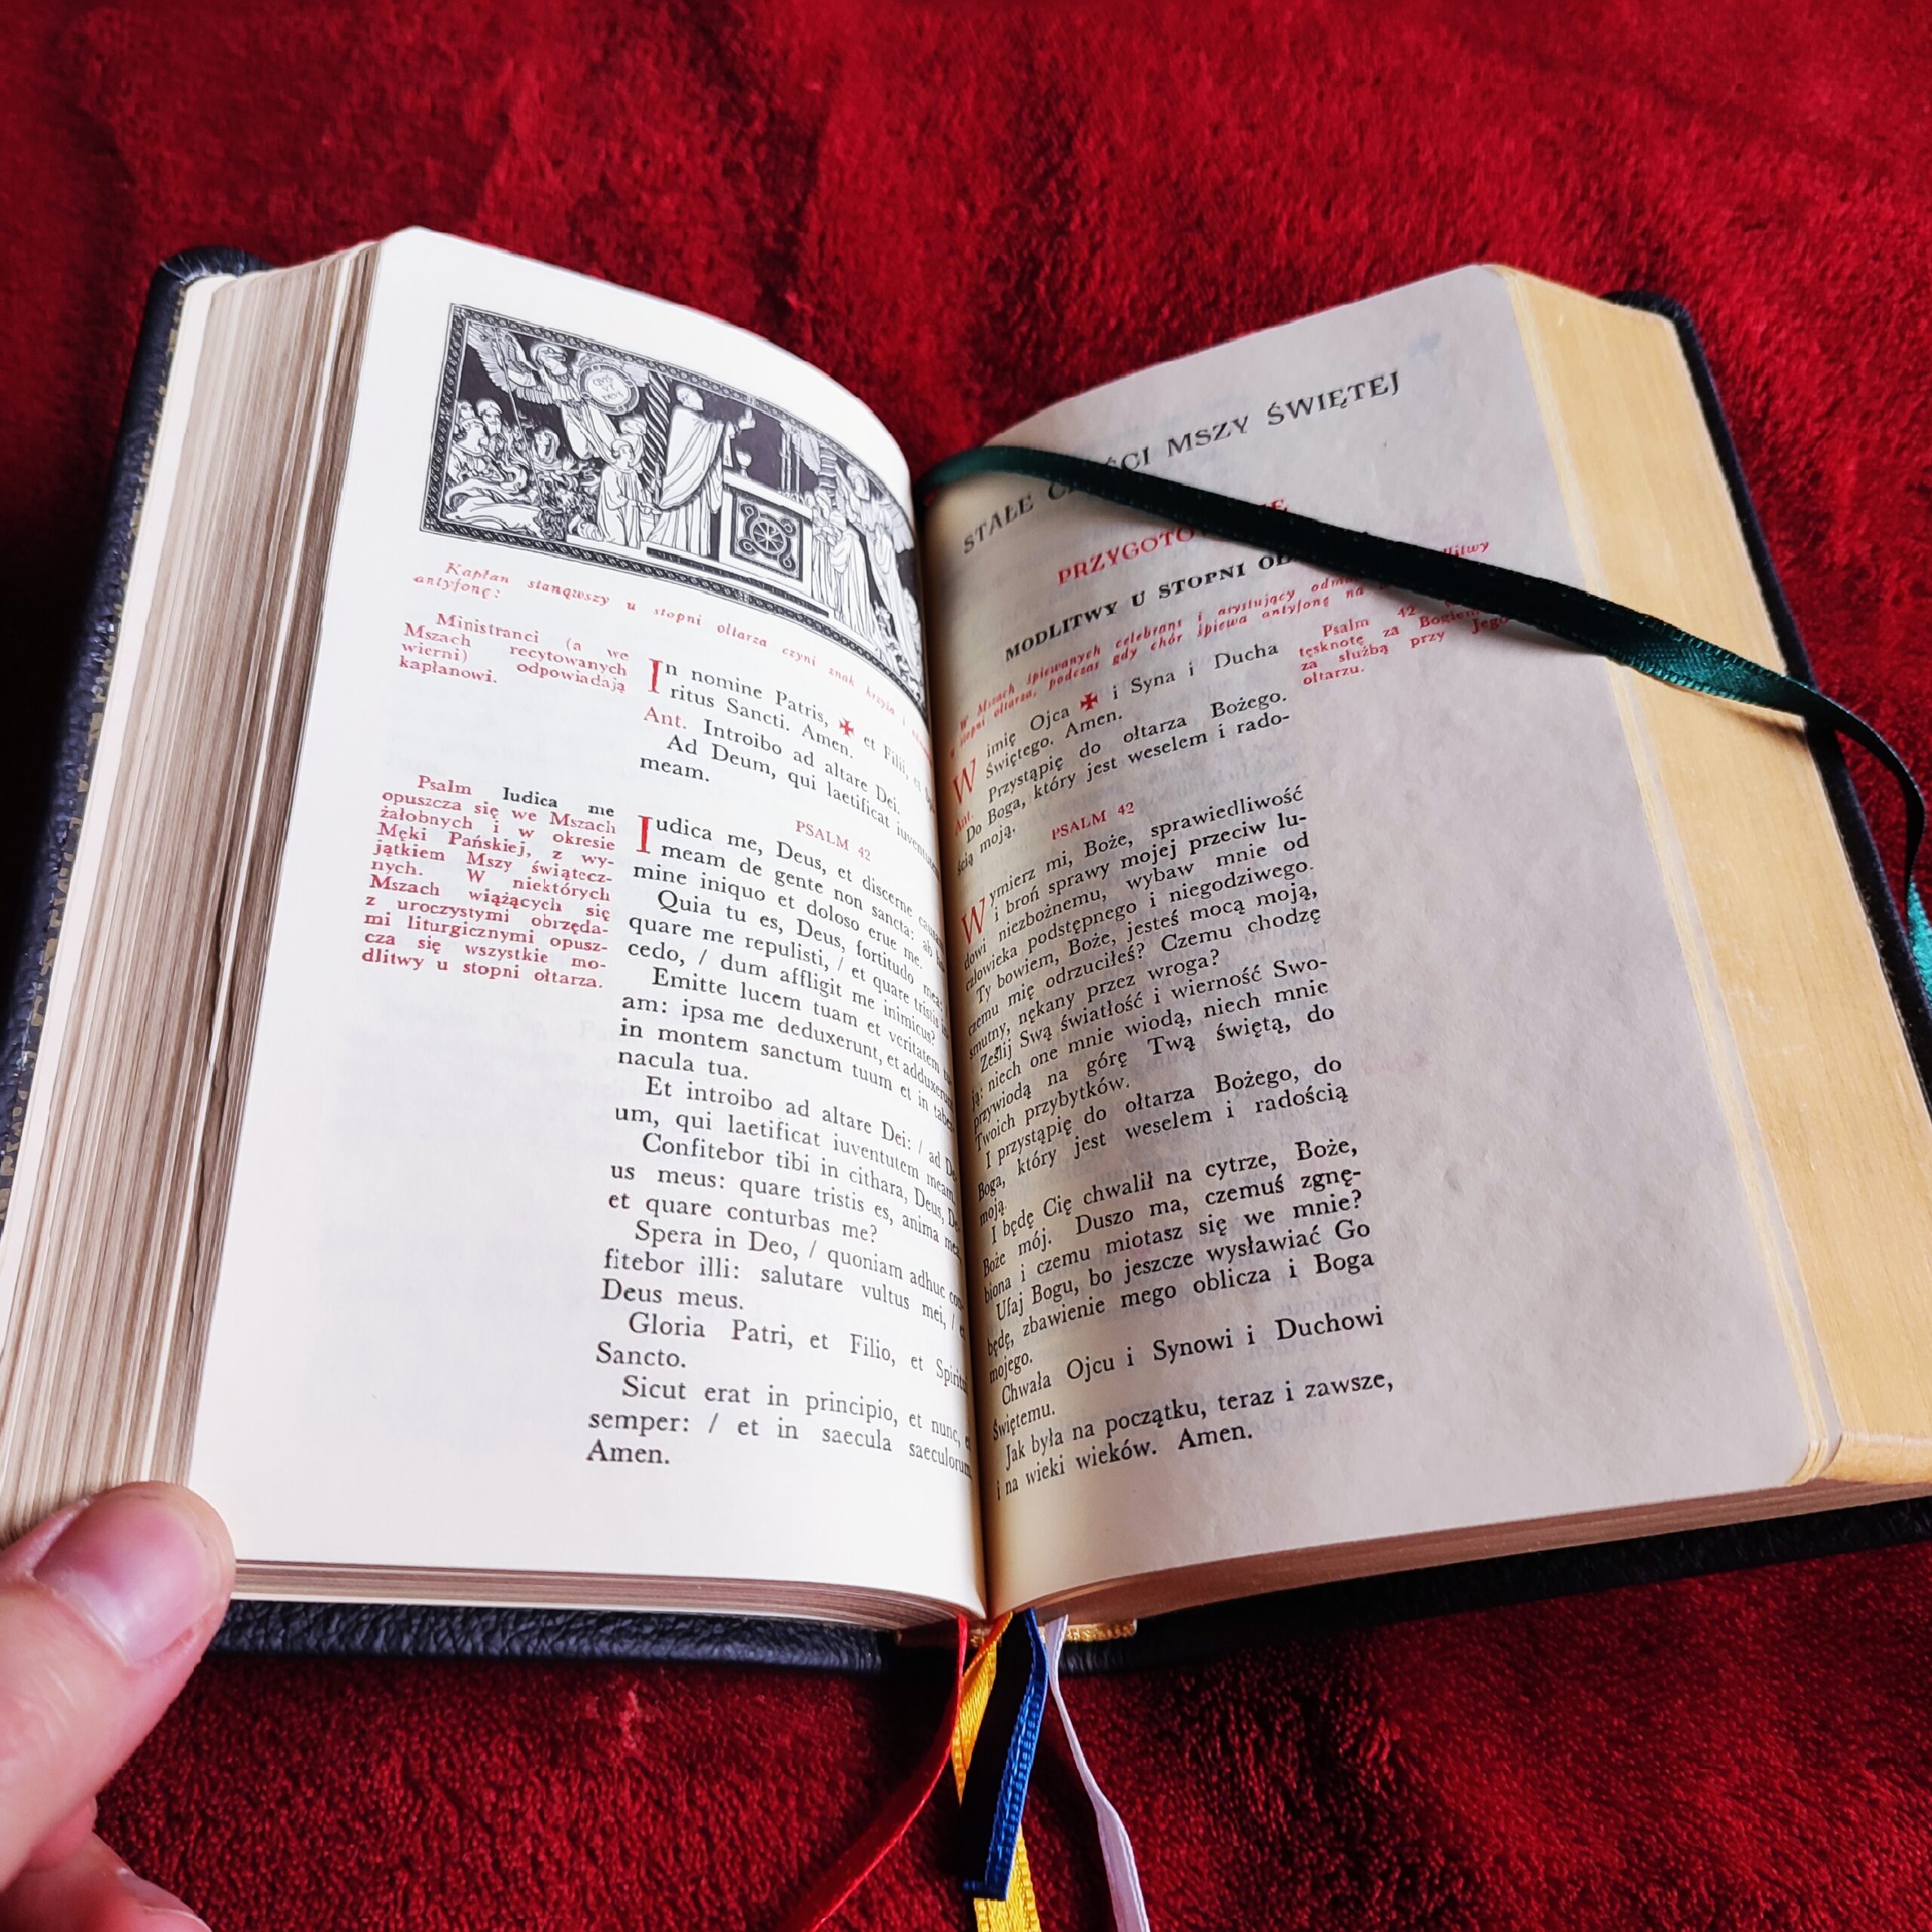 Kapłan stanąwszy u stopni ołtarza czyni znak krzyża i
antyfonę:
Ministranci (a we
Mszach recytowanych
wierni) odpowiadają
kapłanowi.
In nomine Patris, ✠ et Filii, et Spi
ritus Sancti. Amen.
Ant. Introibo ad altare Dei.
Ad Deum, qui laetificat iuventutem
meam.
Psalm Iudica me
opuszcza się we Mszach
żałobnych i w okresie
Męki Pańskiej, z wy-
jątkiem Mszy świątecz-
nych. W niektórych
Mszach wiążących się
z uroczystymi obrzęda-
mi liturgicznymi opusz-
cza się wszystkie mo-
dlitwy u stopni ołtarza.
PSALM 42
Iudica me, Deus, et discerne causam
meam de gente non sancta: ab ho
mine iniquo et doloso erue me.
Quia tu es, Deus, fortitudo mea:
quare me repulisti, / et quare tristis in
cedo, / dum affligit me inimicus?
Emitte lucem tuam et veritatem tu
am: ipsa me deduxerunt, et adduxerunt
in montem sanctum tuum et in taber-
nacula tua.
Et introibo ad altare Dei: / ad De-
um, qui laetificat iuventutem meam.
Confitebor tibi in cithara, Deus, De
us meus: quare tristis es, anima mea,
et quare conturbas me?
Spera in Deo, / quoniam adhuc con-
fitebor illi: salutare vultus mei, / et
Deus meus.
Gloria Patri, et Filio, et Spiritui
Sancto.
Sicut erat in principio, et nunc, et
semper: / et in saecula saeculorum
Amen.
STAŁE MSZY ŚWIĘTEJ
MODLITWY U STOPNI
W Mszach śpiewanych celebrans i asystujący
u stopni ołtarza, podczas gdy chór śpiewa antyfonę na
Psalm 42
tęsknotę za Bogiem
za służbą przy Jego
ołtarzu.
W imię Ojca ✠ i Syna i Ducha
Świętego. Amen.
Ant. Przystąpię do ołtarza Bożego.
Do Boga, który jest weselem i rado-
ścią moją.
PSALM 42
Wymierz mi, Boże, sprawiedliwość
i broń sprawy mojej przeciw lu-
dowi niezbożnemu, wybaw mnie od
człowieka podstępnego i niegodziwego.
Ty bowiem, Boże, jesteś mocą moją,
czemu mię odrzuciłeś? Czemu chodzę
smutny, nękany przez wroga?
Ześlij Swą światłość i wierność Swo-
ją: niech one mnie wiodą, niech mnie
przywiodą na górę Twą świętą, do
Twoich przybytków.
I przystąpię do ołtarza Bożego, do
Boga, który jest weselem i radością
moją.
I będę Cię chwalił na cytrze, Boże,
Boże mój. Duszo ma, czemuś zgnę-
biona i czemu miotasz się we mnie?
Ufaj Bogu, bo jeszcze wysławiać Go
będę, zbawienie mego oblicza i Boga
mojego.
Chwała Ojcu i Synowi i Duchowi
Świętemu.
Jak była na początku, teraz i zawsze,
i na wieki wieków. Amen.